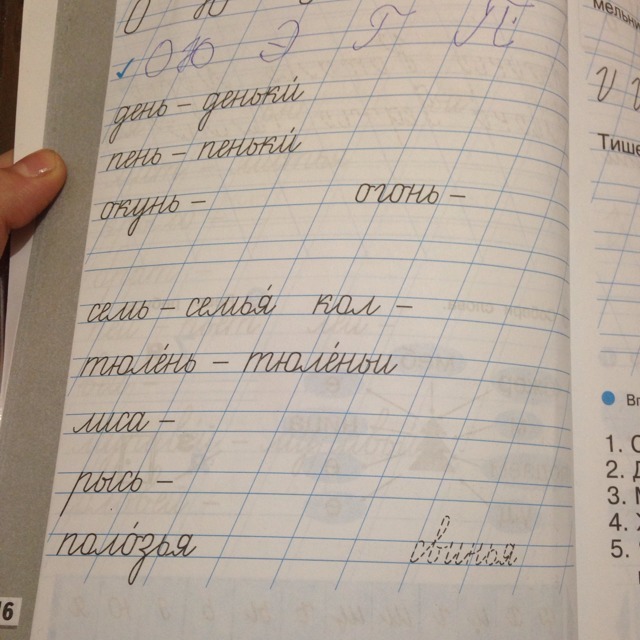 О Ю Э Г П
день – деньки́
пень – пеньки́
окунь – огонь –
семь – семья́ кол –
тюле́нь – тюле́ньи
лиса –
рысь –
поло́зья свинья
Тише
1.
2.
3.
4.
5.